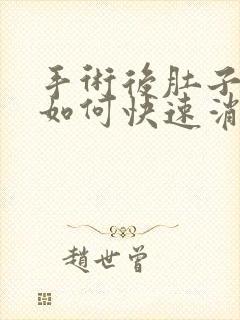 手術後肚子
如何快速消
趙世曾